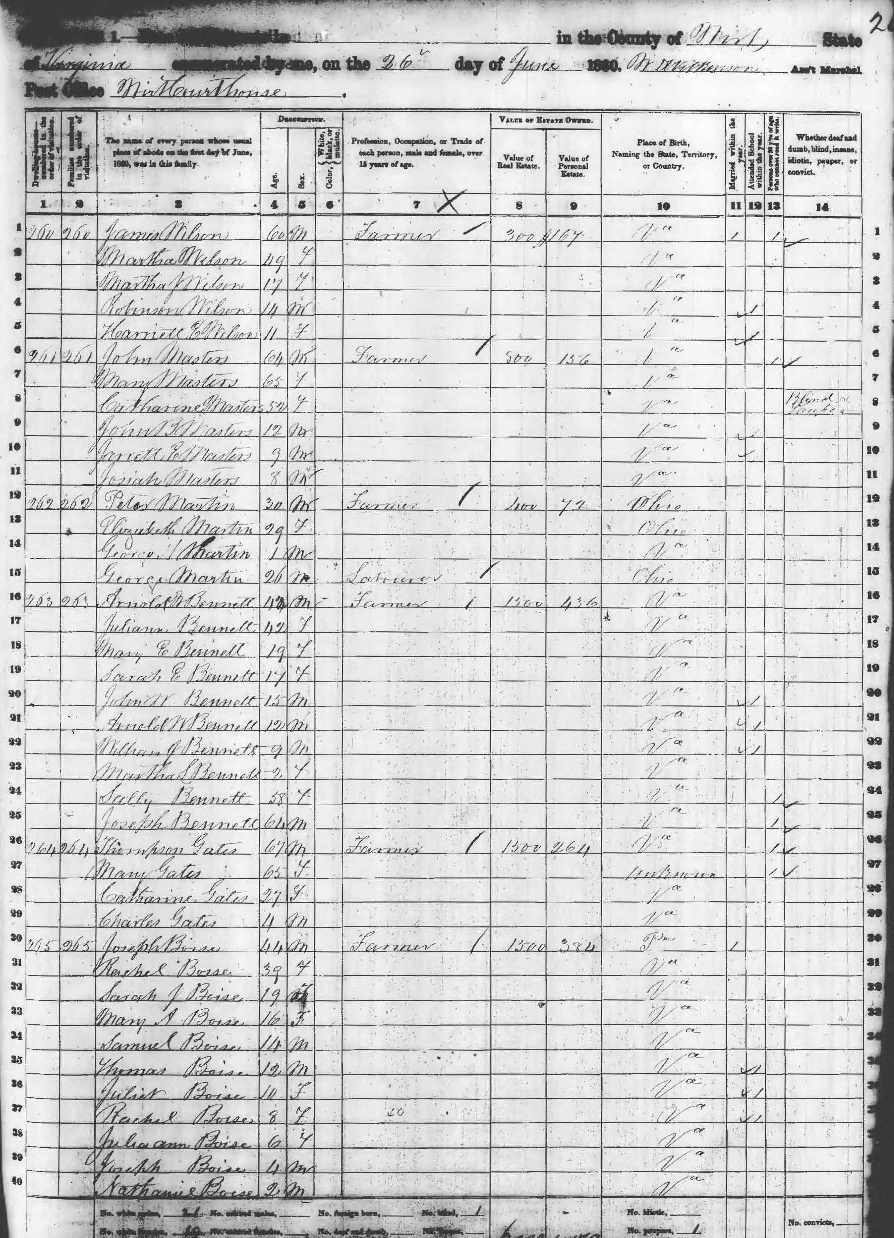 2
1.
in the County of Wirt, State
of Virginia enumerated by me, on the 26 day of June 1860. Ass't Marshal.
Post Office Wirt Courthouse.
DESCRIPTION. VALUE OF ESTATE OWNED.
Dwelling-houses numbered in the order of visitation. Families numbered in the order of visitation. The name of every person whose usual place of abode on the first day of June, 1860, was in this family. Age. Sex. Color, White, black, or mulatto. Profession, Occupation, or Trade of each person, male and female, over 15 years of age. Value of Real Estate. Value of Personal Estate. Place of Birth, Naming the State, Territory, or Country. Married within the year. Attended School within the year. Persons over 20 y'rs of age who cannot read & write. Whether deaf and dumb, blind, insane, idiotic, pauper, or convict.
1 2 3 4 5 6 7 8 9 10 11 12 13 14
1 260 260 James Wilson 60 M Farmer / 300 167 Va 1 1 1
2 Martha Wilson 49 F Va 2
3 Martha J Wilson 17 F Va 3
4 Robinson Wilson 14 M Va 1 4
5 Harriett E Wilson 11 F Va 1 5
6 261 261 John Masters 64 M Farmer / 500 156 Va 1 6
7 Mary Masters 65 F Va 7
8 Catharine Masters 52 F Va Blind 8
9 John B Masters 12 M Va 9
10 Jarrett E Masters 9 M Va 10
11 Josiah Masters 8 M Va 11
12 262 262 Peter Martin 30 M Farmer / 400 72 Ohio 12
13 Elizabeth Martin 29 F Ohio 13
14 George Martin 1 M Va 14
15 George Martin 26 M Labourer / Ohio 15
16 263 263 Arnold W Bennett 42 M Farmer / 1500 436 Va 16
17 Juliann Bennett 42 F Va 17
18 Mary E Bennett 19 F Va 18
19 Sarah E Bennett 17 F Va 19
20 John W Bennett 15 M Va 1 20
21 Arnold W Bennett 12 M Va 1 21
22 William J Bennett 9 M Va 1 22
23 Martha S Bennett 2 F Va 23
24 Sally Bennett 58 F Va 1 24
25 Joseph Bennett 64 M Va 1 25
26 264 264 Thompson Gates 67 M Farmer / 1500 264 Va 1 26
27 Mary Gates 65 F Unknown 1 27
28 Catharine Gates 27 F Va 28
29 Charles Gates 4 M Va 29
30 265 265 Joseph Boise 44 M Farmer / 1500 384 1 30
31 Rachel Boise 39 F Va 31
32 Sarah J Boise 19 F Va 32
33 Mary A Boise 16 F Va 33
34 Samuel Boise 14 M Va 34
35 Thomas Boise 12 M Va 1 35
36 Juliet Boise 10 F Va 1 36
37 Rachel Boise 8 F Va 1 37
38 Julia ann Boise 6 F Va 38
39 Joseph Boise 4 M Va 39
40 Nathaniel Boise 2 M Va 40
No. white males, No. colored males, No. foreign born, No. blind, 1 No. idiotic,
No. white females, No. colored females, No. deaf and dumb, No. insane, No. paupers, 1 No. convicts,